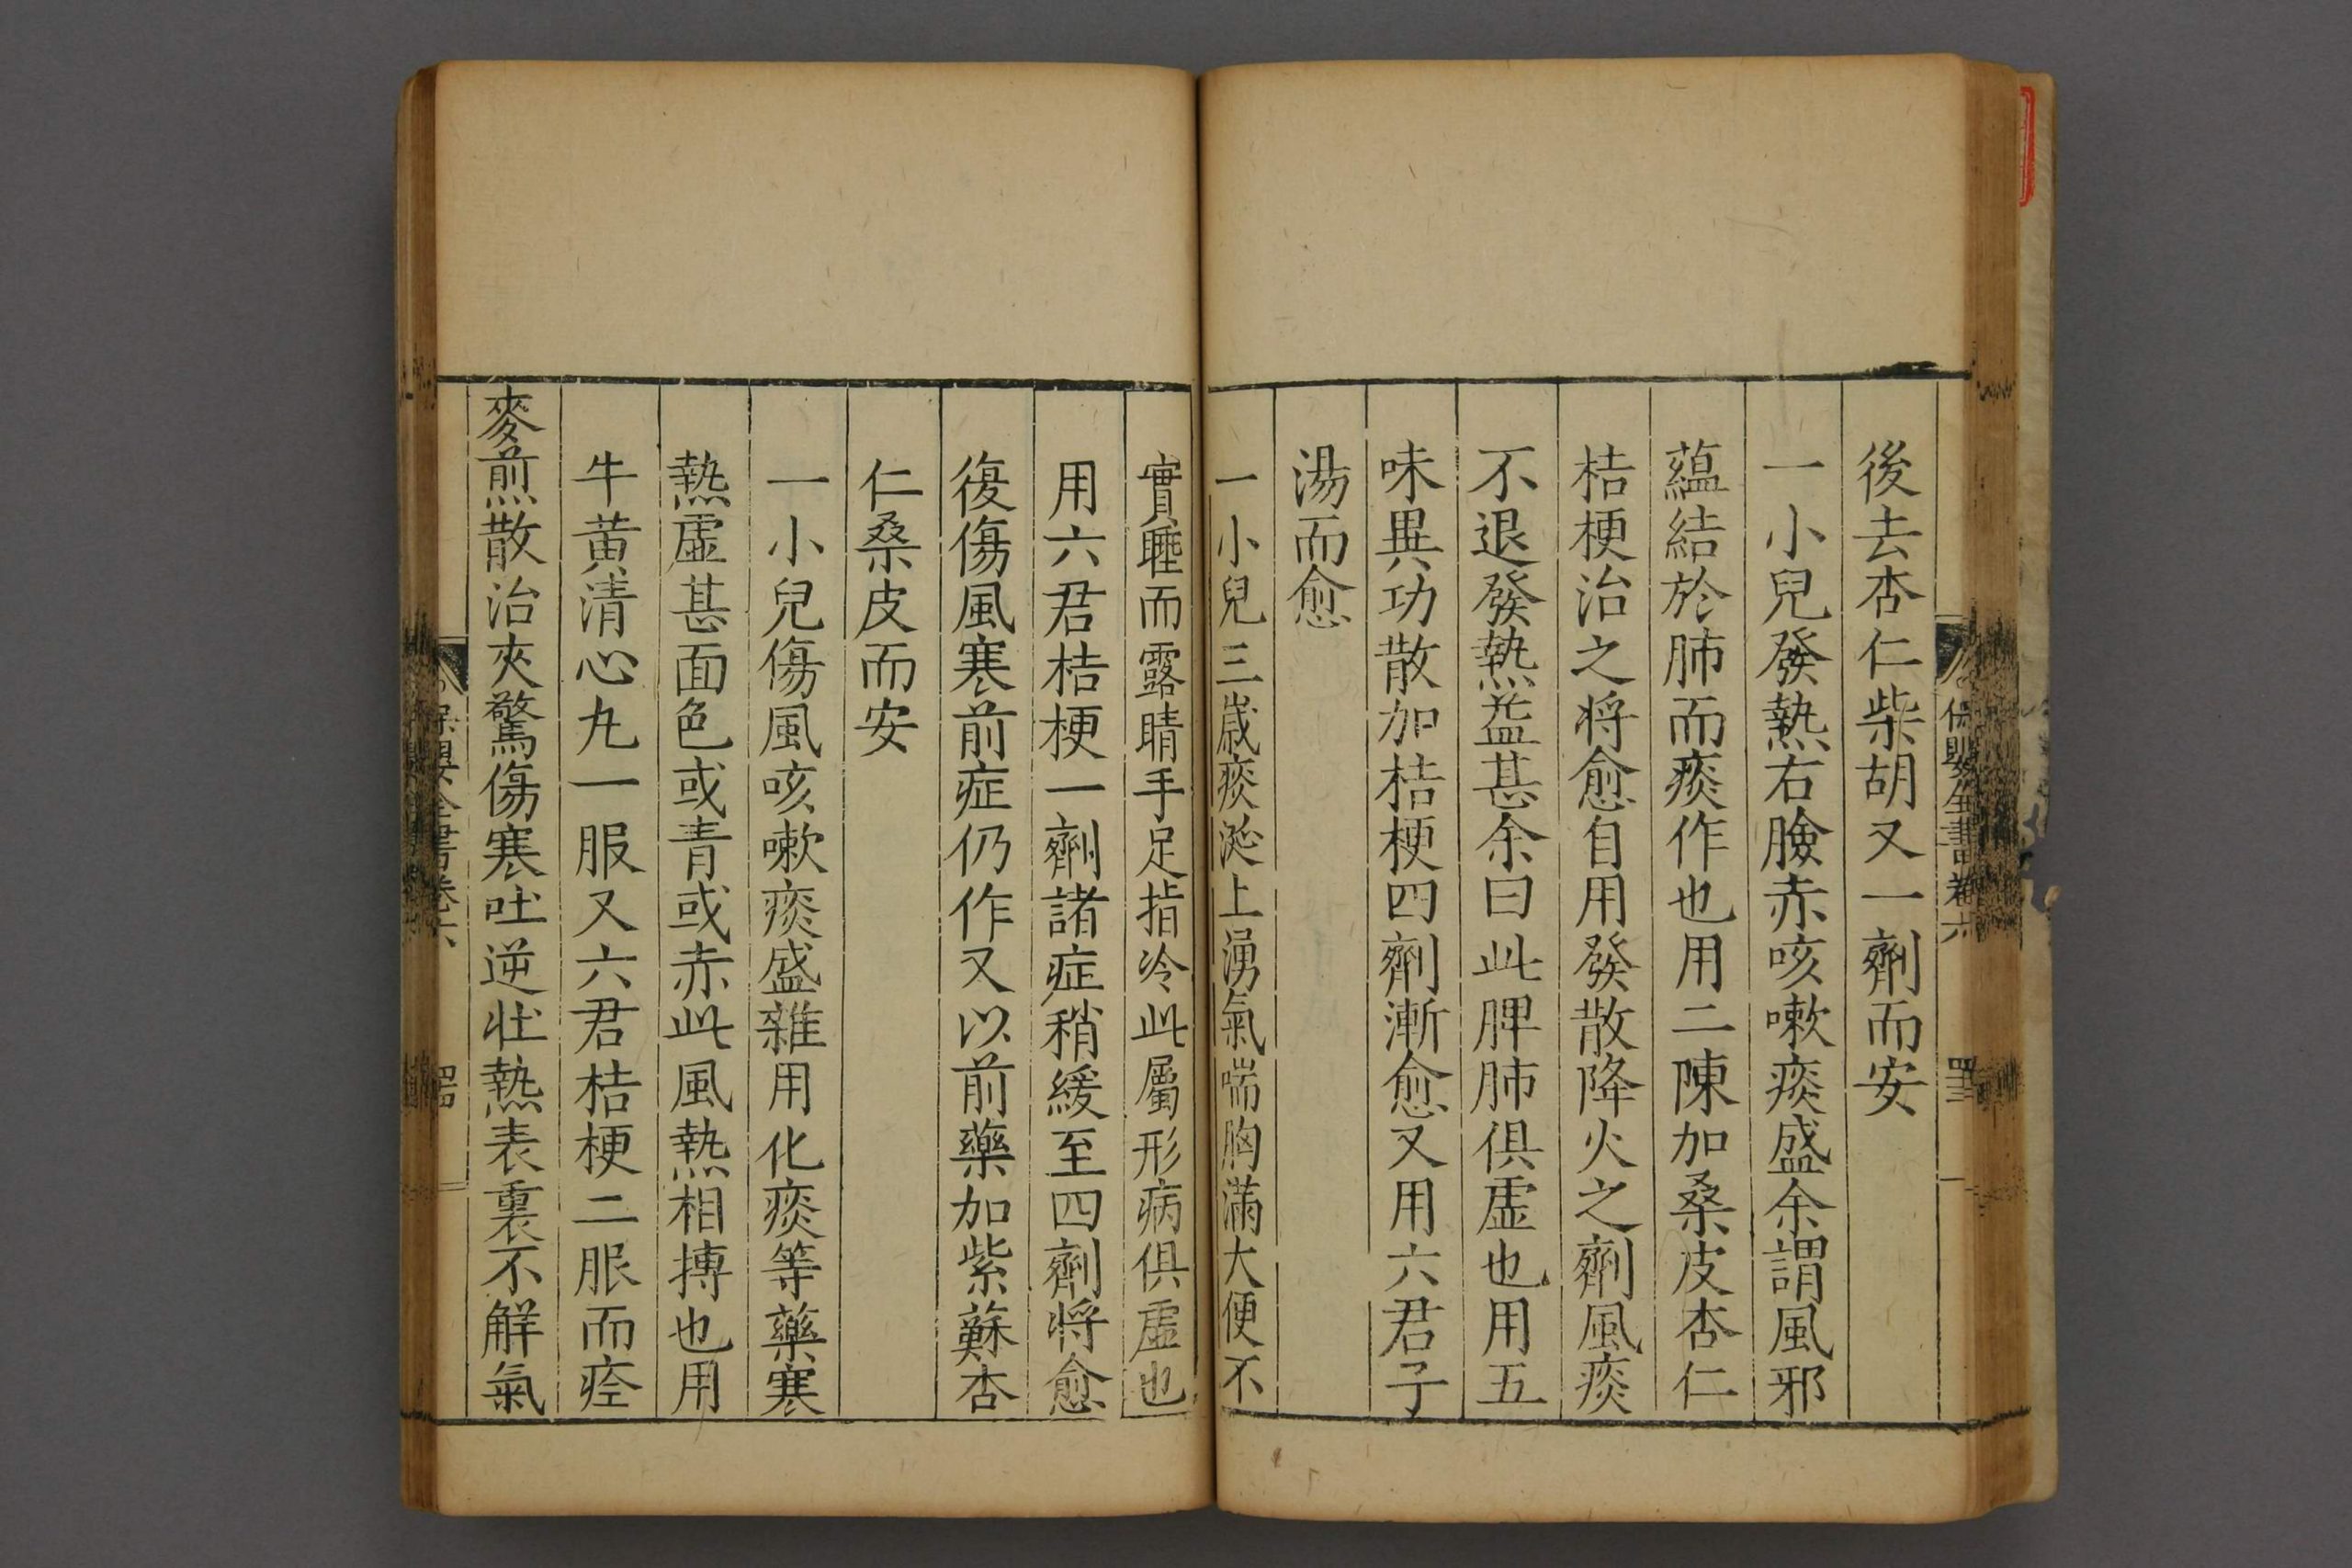 保嬰全書卷六
後去杏仁柴胡又一劑而安
一小兒發熱右臉赤咳嗽痰盛余謂風邪
蘊結於肺而痰作也用二陳加桑皮杏仁
桔梗治之将愈自用發散降火之劑風痰
不退發熱益甚余曰此脾肺俱虛也用五
味異功散加桔梗四劑漸愈又用六君子
湯而愈
一小兒三歲痰涎上湧氣喘胸滿大便不
實睡而露睛手足指冷此屬形病俱虛也
用六君桔梗一劑諸症稍緩至四劑将愈
復傷風寒前症仍作又以前藥加紫蘇杏
仁桑皮而安
一小兒傷風咳嗽痰盛雜用化痰等藥寒
熱虛甚面色或青或赤此風熱相搏也用
牛黄清心丸一服又六君桔梗二服而痊
麥煎散治夾驚傷寒吐逆壯熱表裏不解氣
保嬰全書卷六